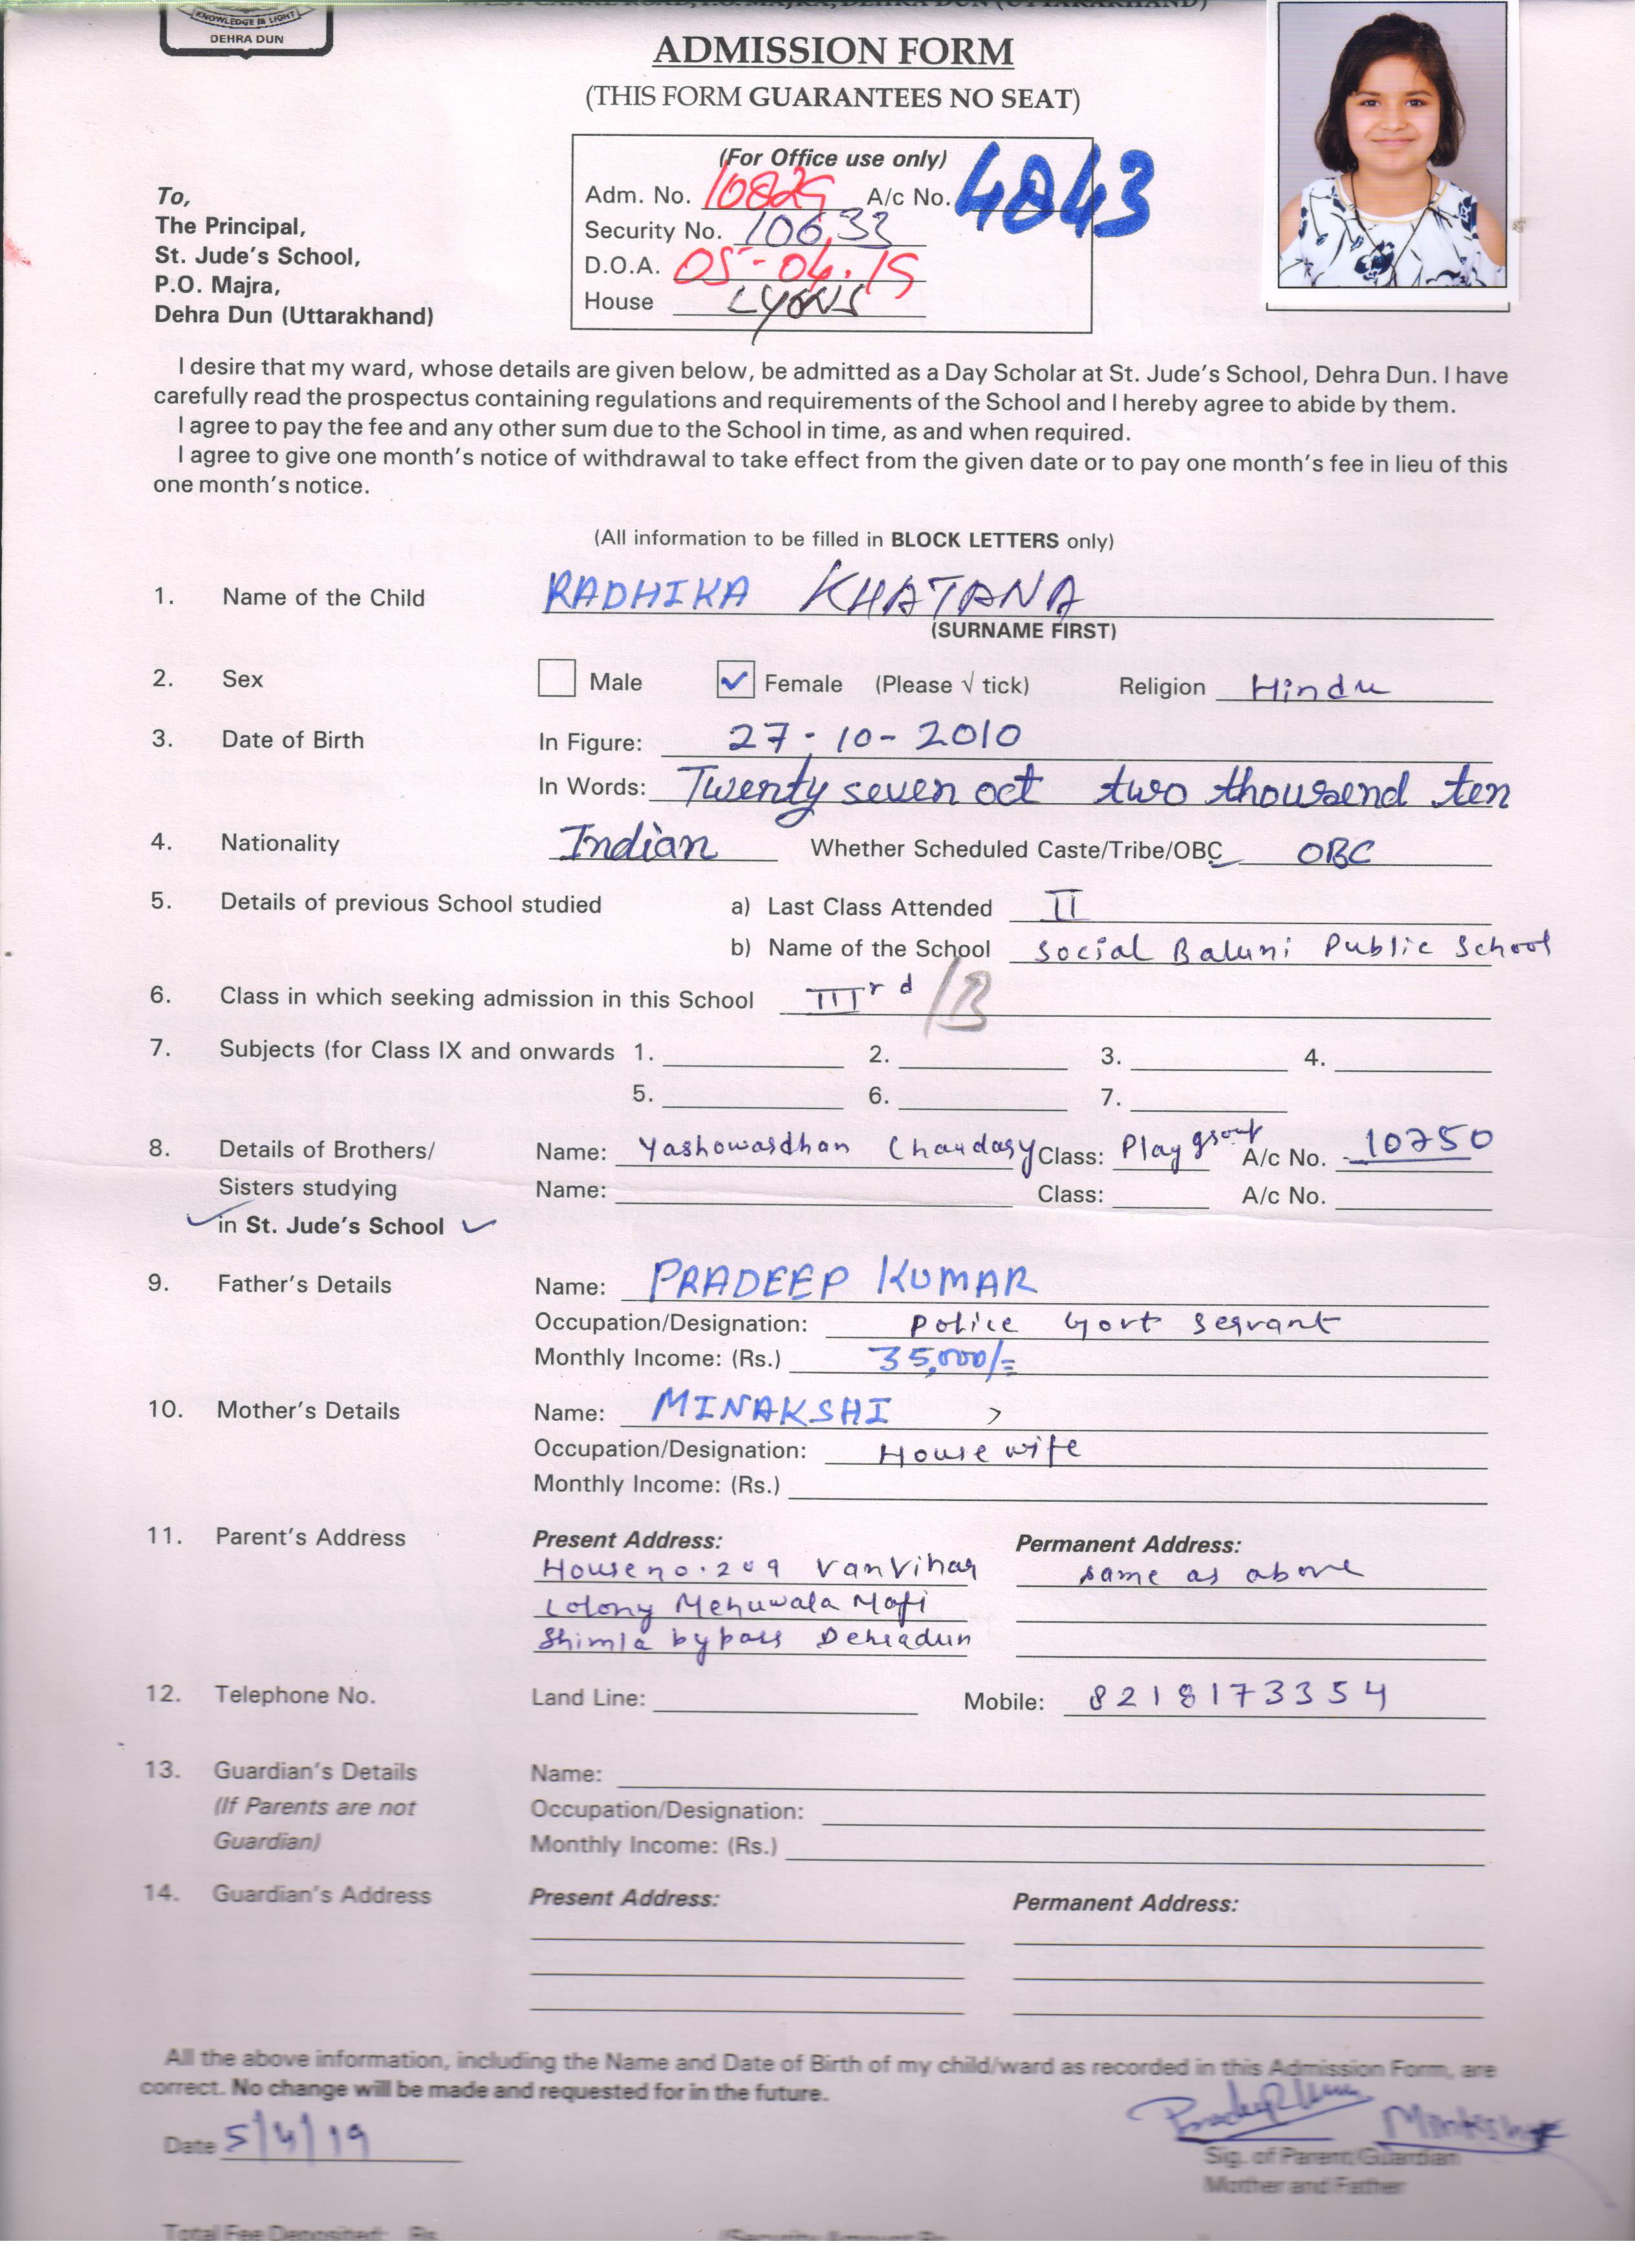 KNOWLEDGE IS LIGHT
DEHRA DUN
WEST CANAL ROAD, P.O. MAJRA, DEHRA DUN (UTTARAKHAND)
ADMISSION FORM
(THIS FORM GUARANTEES NO SEAT)
(For Office use only)
Adm. No. 10825 A/c No. 4843
Security No. 10633
D.O.A. 05-04.19
House LYONS
To,
The Principal,
St. Jude's School,
P.O. Majra,
Dehra Dun (Uttarakhand)
I desire that my ward, whose details are given below, be admitted as a Day Scholar at St. Jude's School, Dehra Dun. I have
carefully read the prospectus containing regulations and requirements of the School and I hereby agree to abide by them.
I agree to pay the fee and any other sum due to the School in time, as and when required.
I agree to give one month's notice of withdrawal to take effect from the given date or to pay one month's fee in lieu of this
one month's notice.
(All information to be filled in BLOCK LETTERS only)
1. Name of the Child RADHIKA KHATANA
(SURNAME FIRST)
2. Sex Male ✓ Female (Please √ tick) Religion Hindu
3. Date of Birth In Figure: 27-10-2010
In Words: Twenty seven oct two thousend ten
4. Nationality Indian Whether Scheduled Caste/Tribe/OBC OBC
5. Details of previous School studied a) Last Class Attended II
b) Name of the School Social Baluni Public School
6. Class in which seeking admission in this School IIIrd /B
7. Subjects (for Class IX and onwards 1. 2. 3. 4.
5. 6. 7.
8. Details of Brothers/ Name: Yashowardhan Chaudary Class: Play group A/c No. 10750
Sisters studying Name: Class: A/c No.
in St. Jude's School
9. Father's Details Name: PRADEEP KUMAR
Occupation/Designation: Police Govt Servant
Monthly Income: (Rs.) 35,000/=
10. Mother's Details Name: MINAKSHI
Occupation/Designation: House wife
Monthly Income: (Rs.)
11. Parent's Address Present Address: Permanent Address:
House no. 209 Van Vihar same as above
Colony Mehuwala Mafi
Shimla bypass Dehradun
12. Telephone No. Land Line: Mobile: 8218173354
13. Guardian's Details Name:
(If Parents are not Occupation/Designation:
Guardian) Monthly Income: (Rs.)
14. Guardian's Address Present Address: Permanent Address:
All the above information, including the Name and Date of Birth of my child/ward as recorded in this Admission Form, are
correct. No change will be made and requested for in the future.
Date 5/4/19
Sig. of Parent/Guardian
Mother and Father
Total Fee Deposited: Rs.